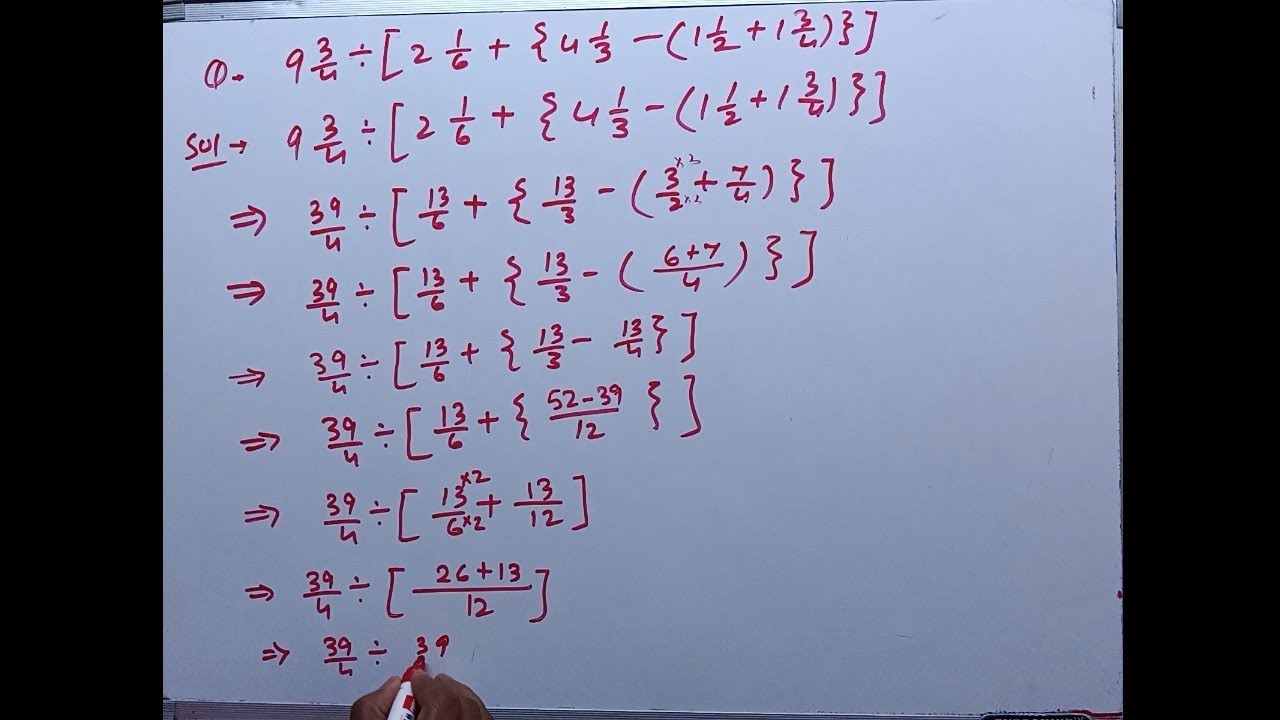 Q. 9 3/4 ÷ [ 2 1/6 + { 4 1/3 − ( 1 1/2 + 1 3/4 ) } ]
Sol → 9 3/4 ÷ [ 2 1/6 + { 4 1/3 − ( 1 1/2 + 1 3/4 ) } ]
⇒ 39/4 ÷ [ 13/6 + { 13/3 − ( 3/2 ×2 ×2 + 7/4 ) } ]
⇒ 39/4 ÷ [ 13/6 + { 13/3 − ( 6+7/4 ) } ]
⇒ 39/4 ÷ [ 13/6 + { 13/3 − 13/4 } ]
⇒ 39/4 ÷ [ 13/6 + { 52−39/12 } ]
⇒ 39/4 ÷ [ 13×2/6×2 + 13/12 ]
⇒ 39/4 ÷ [ 26+13/12 ]
⇒ 39/4 ÷ 39